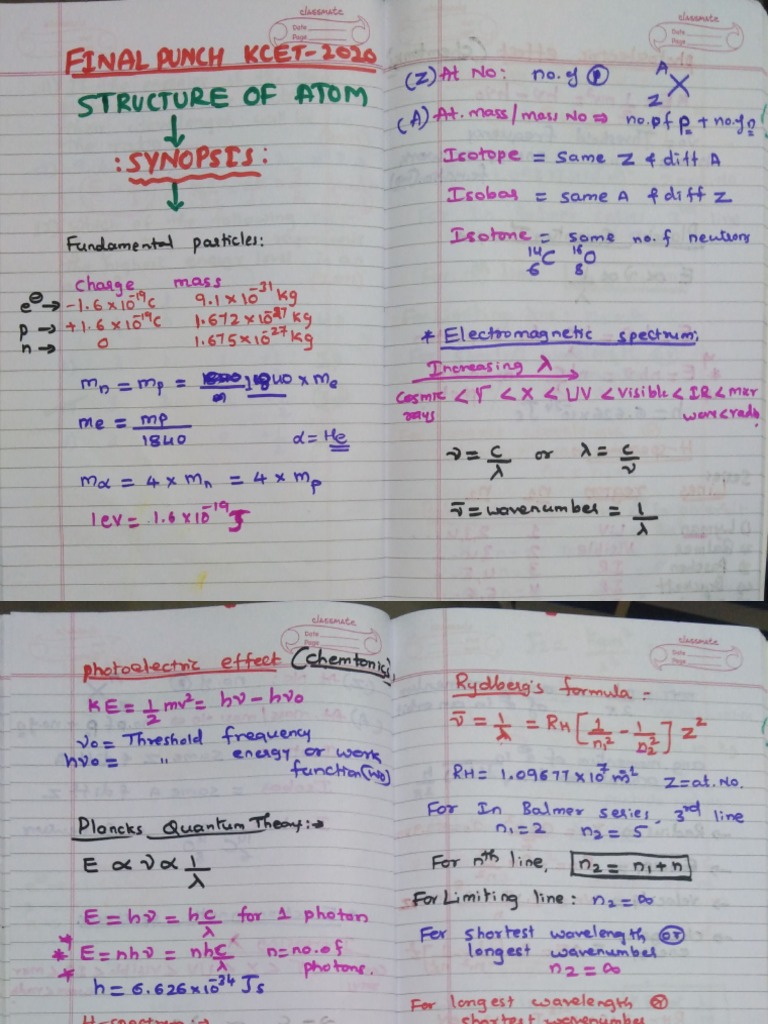 classmate
Date
Page
FINAL PUNCH KCET-2020
STRUCTURE OF ATOM
:SYNOPSIS:
Fundamental particles:
charge mass
e⊖→ -1.6×10⁻¹⁹c 9.1×10⁻³¹kg
p → +1.6×10⁻¹⁹c 1.672×10⁻²⁷kg
n → 0 1.675×10⁻²⁷kg
mn = mp = 1840 × me
me = mp/1840
α = He
mα = 4 × mn = 4 × mp
1ev = 1.6×10⁻¹⁹J
classmate
Date
Page
(Z) At No: no. of p
A
X
Z
(A) At. mass/mass No ⇒ no. of p + no. of n
Isotope = same Z & diff A
Isobar = same A & diff Z
Isotone = same no. of neutrons
¹⁴₆C ¹⁶₈O
* Electromagnetic spectrum:
Increasing λ
cosmic rays < γ < X < UV < visible < IR < micr
wave < radio
ν = c/λ or λ = c/ν
ν̄ = wavenumber = 1/λ
classmate
Date
Page
photoelectric effect (chemtonics)
KE = 1/2 mv² = hν - hν₀
ν₀ = Threshold frequency
hν₀ = " energy or work
function(w₀)
Ploncks Quantum Theory:→
E ∝ ν ∝ 1/λ
E = hν = hc/λ for 1 photon
* E = nhν = nhc/λ n = no. of
* * photons.
h = 6.626×10⁻³⁴ Js
H-spectrum:→
classmate
Date
Page
Rydberg's formula:
ν̄ = 1/λ = RH [1/n₁² - 1/n₂²] Z²
RH = 1.09677×10⁷ m⁻¹ Z = at. No.
For In Balmer series, 3rd line
n₁=2 n₂=5
For nth line, n₂ = n₁+n
For Limiting line: n₂ = ∞
For shortest wavelength or
longest wavenumber
n₂ = ∞
For longest wavelength or
shortest wavenumber